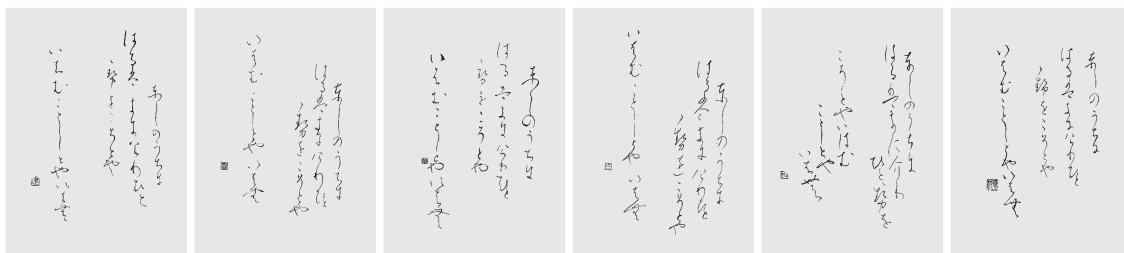 としのうちに
はるはきにけりひと
とせをこそとや
いはむことしとやいは無
としのうちに
はるはきにけりひと
とせをこそとや
いはむことしとやいは無
としのうちに
はるはきにけりひと
とせをこそとや
いはむことしとやいは無
としのうちに
はるはきにけりひと
とせをこそとや
いはむことしとやいは無
としのうちに
はるはきにけり
ひととせを
こそとやいはむ
ことしとや
いは無
としのうちに
はるはきにけりひと
とせをこそとや
いはむことしとやいは無